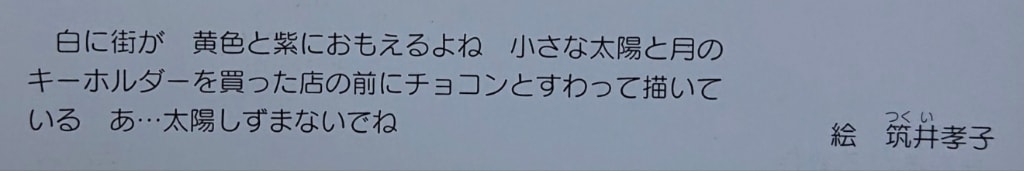 白に街が　黄色と紫におもえるよね　小さな太陽と月の
キーホルダーを買った店の前にチョコンとすわって描いて
いる　あ…太陽しずまないでね
絵　筑井孝子
つくい